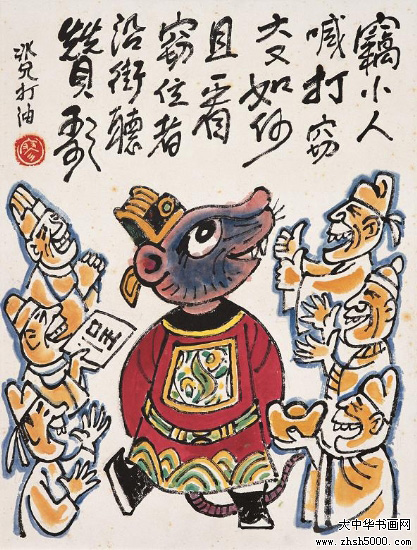 竊小人
喊打窃
大又如何
且看
窃位者
沿街聽
讚歌
冰兄打油
大中华书画网
www.zhsh5000.com